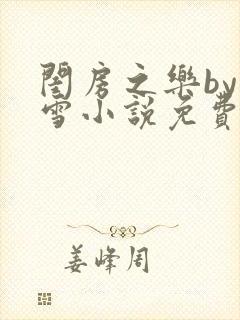 閨房之樂by
雪小說免費
姜峰周